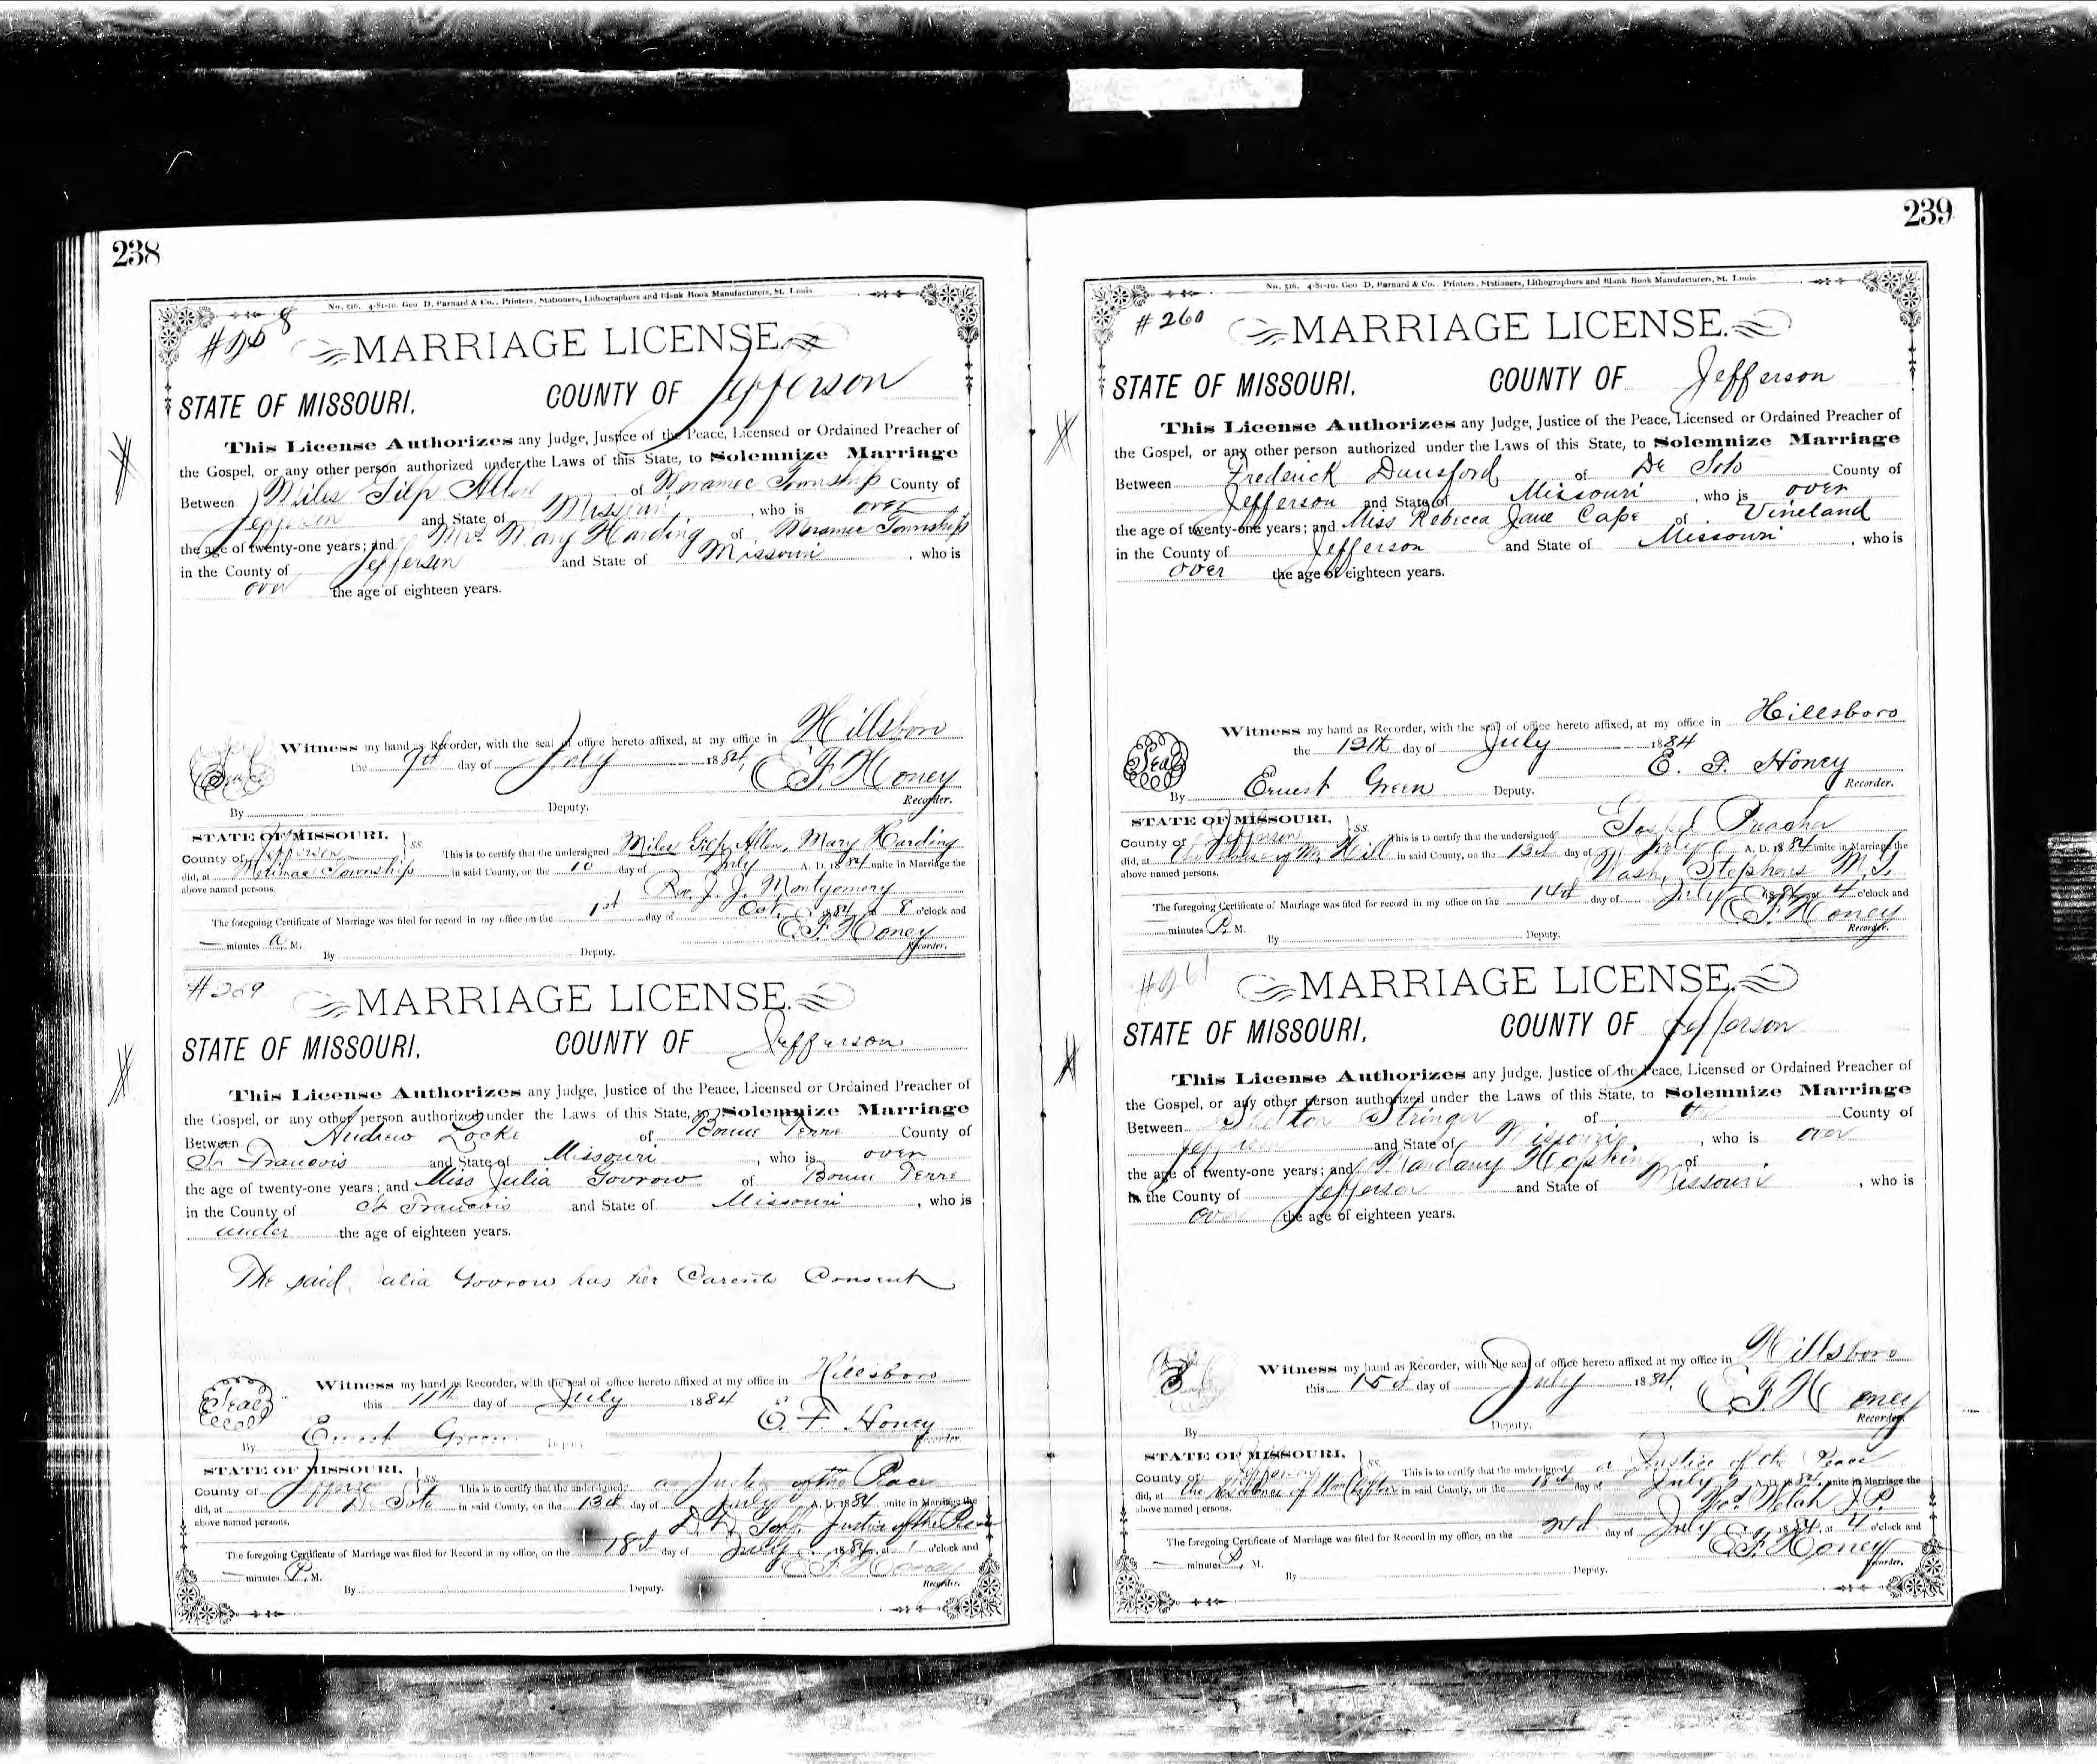 238
No. 516. 4-81-10. Geo D. Barnard & Co., Printers, Stationers, Lithographers and Blank Book Manufacturers, St. Louis.
MARRIAGE LICENSE.
STATE OF MISSOURI, COUNTY OF Jefferson
This License Authorizes any Judge, Justice of the Peace, Licensed or Ordained Preacher of
the Gospel, or any other person authorized under the Laws of this State, to Solemnize Marriage
Between Miles Gilp Allen of Meramec Township County of
Jefferson and State of Missouri, who is over
the age of twenty-one years; and Mrs. Mary Harding of Meramec Township
in the County of Jefferson and State of Missouri, who is
over the age of eighteen years.
Witness my hand as Recorder, with the seal of office hereto affixed, at my office in Hillsboro
the 9th day of July 1884,
Seal E. F. Honey
Recorder.
By Deputy.
STATE OF MISSOURI,
County of Jefferson ss. This is to certify that the undersigned Miles Gilp Allen, Mary Harding
did, at Merimac Township in said County, on the 10 day of July A. D. 1884 unite in Marriage the
above named persons. Rev. J. J. Montgomery
The foregoing Certificate of Marriage was filed for record in my office on the 1st day of Oct. 1884 at 8 o'clock and
— minutes A. M. E. F. Honey
Recorder.
By Deputy.
MARRIAGE LICENSE.
STATE OF MISSOURI, COUNTY OF Jefferson
This License Authorizes any Judge, Justice of the Peace, Licensed or Ordained Preacher of
the Gospel, or any other person authorized under the Laws of this State, to Solemnize Marriage
Between Andrew Locke of Bonne Terre County of
St Francois and State of Missouri, who is over
the age of twenty-one years; and Miss Julia Govrow of Bonne Terre
in the County of St Francois and State of Missouri, who is
under the age of eighteen years.
The said Julia Govrow has her Parents Consent
Witness my hand as Recorder, with the seal of office hereto affixed at my office in Hillsboro
this 11th day of July 1884
Seal E. F. Honey
By Ernest Green Deputy Recorder
STATE OF MISSOURI,
County of Jefferson ss. This is to certify that the undersigned a Justice of the Peace
did, at De Soto in said County, on the 13th day of July A. D. 1884 unite in Marriage the
above named persons. Justice of the Peace
The foregoing Certificate of Marriage was filed for Record in my office, on the 18th day of July 1884, at 1 o'clock and
— minutes P. M. E. F. Honey
Recorder.
By Deputy.
239
No. 516. 4-81-10. Geo D. Barnard & Co., Printers, Stationers, Lithographers and Blank Book Manufacturers, St. Louis
# 260
MARRIAGE LICENSE.
STATE OF MISSOURI, COUNTY OF Jefferson
This License Authorizes any Judge, Justice of the Peace, Licensed or Ordained Preacher of
the Gospel, or any other person authorized under the Laws of this State, to Solemnize Marriage
Between Frederick Dunsford of De Soto County of
Jefferson and State of Missouri, who is over
the age of twenty-one years; and Miss Rebecca Jane Cape of Vineland
in the County of Jefferson and State of Missouri, who is
over the age of eighteen years.
Witness my hand as Recorder, with the seal of office hereto affixed, at my office in Hillsboro
the 12th day of July 1884
Seal E. F. Honey
By Ernest Green Deputy. Recorder.
STATE OF MISSOURI,
County of Jefferson ss. This is to certify that the undersigned Gospel Preacher
did, at the house of Mr Hill in said County, on the 13th day of July A. D. 1884 unite in Marriage the
above named persons. Wash. Stephens M. G.
The foregoing Certificate of Marriage was filed for record in my office on the 14th day of July 1884 at 4 o'clock and
— minutes P. M. E. F. Honey
Recorder.
By Deputy.
#261
MARRIAGE LICENSE.
STATE OF MISSOURI, COUNTY OF Jefferson
This License Authorizes any Judge, Justice of the Peace, Licensed or Ordained Preacher of
the Gospel, or any other person authorized under the Laws of this State, to Solemnize Marriage
Between Skelton Stringer of the County of
Jefferson and State of Missouri, who is over
the age of twenty-one years; and Hopkins of
in the County of Jefferson and State of Missouri, who is
over the age of eighteen years.
Witness my hand as Recorder, with the seal of office hereto affixed at my office in Hillsboro
this 15th day of July 1884,
E. F. Honey
Deputy. Recorder.
By
STATE OF MISSOURI,
County of Jefferson ss. This is to certify that the undersigned a Justice of the Peace
did, at the residence of in said County, on the 18th day of July A. D. 1884, unite in Marriage the
above named persons. Welch J. P.
The foregoing Certificate of Marriage was filed for Record in my office, on the day of July 1884, at 4 o'clock and
— minutes P. M. E. F. Honey
Recorder.
By Deputy.